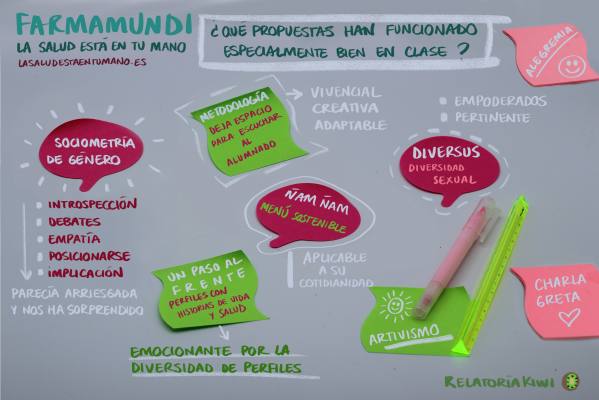 FARMAMUNDI
LA SALUD ESTÁ EN TU MANO
LASALUDESTAENTUMANO.ES
¿QUÉ PROPUESTAS HAN FUNCIONADO
ESPECIALMENTE BIEN EN CLASE?
ALEGREMIA
METODOLOGÍA
DEJA ESPACIO
PARA ESCUCHAR
AL
ALUMNADO
VIVENCIAL
CREATIVA
ADAPTABLE
EMPODERADOS
PERTINENTE
SOCIOMETRÍA
DE GÉNERO
INTROSPECCIÓN
DEBATES
EMPATÍA
POSICIONARSE
IMPLICACIÓN
PARECÍA ARRIESGADA
Y NOS HA SORPRENDIDO
DIVERSUS
DIVERSIDAD
SEXUAL
ÑAM ÑAM
MENÚ SOSTENIBLE
APLICABLE
A SU
COTIDIANIDAD
UN PASO AL
FRENTE
PERFILES CON
HISTORIAS DE VIDA
Y SALUD
EMOCIONANTE POR LA
DIVERSIDAD DE PERFILES
ARTIVISMO
CHARLA
GRETA
RELATORÍA KIWI